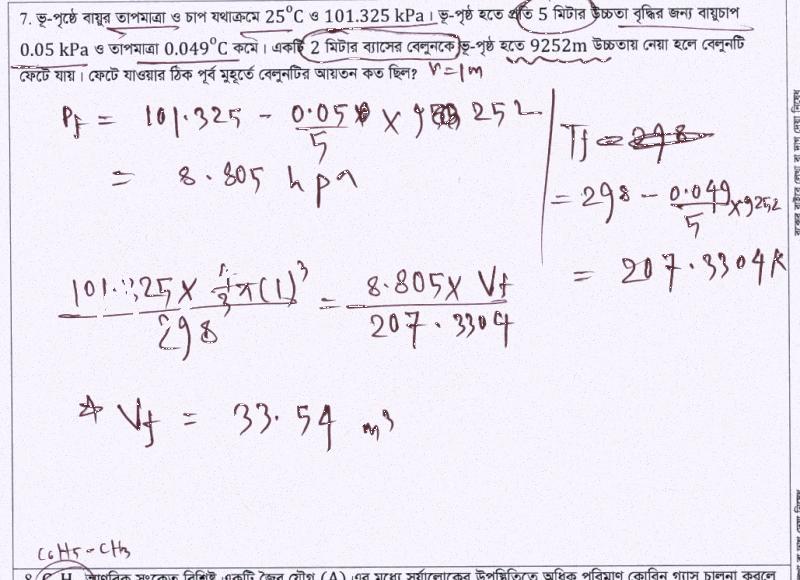 7. ভূ-পৃষ্ঠে বায়ুর তাপমাত্রা ও চাপ যথাক্রমে 25°C ও 101.325 kPa। ভূ-পৃষ্ঠ হতে প্রতি 5 মিটার উচ্চতা বৃদ্ধির জন্য বায়ুচাপ
0.05 kPa ও তাপমাত্রা 0.049°C কমে। একটি 2 মিটার ব্যাসের বেলুনকে ভূ-পৃষ্ঠ হতে 9252m উচ্চতায় নেয়া হলে বেলুনটি
ফেটে যায়। ফেটে যাওয়ার ঠিক পূর্ব মুহূর্তে বেলুনটির আয়তন কত ছিল? r = 1 m
Pf = 101.325 - 0.05/5 × 9252
= 8.805 kpa
Tf =
= 298 - 0.049/5 × 9252
= 207.3304K
101.325 × 4/3 π(1)³ / 298 = 8.805 × Vf / 207.3304
Vf = 33.54 m³
C6H5-CH3